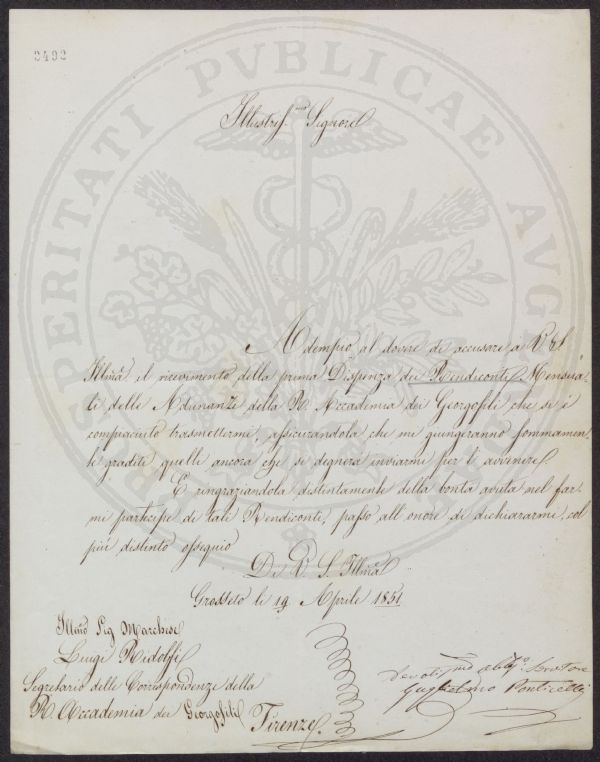 2492
PROSPERITATI PVBLICAE AVGENDAE
Illustriss.mo Signore
Adempio al dovere di accusare a V. S.
Illma il ricevimento della prima Dispenza dei Rendiconti Mensua-
li delle Adunanze della R. Accademia dei Georgofili che si è
compiaciuto trasmettermi, assicurandola che mi giungeranno sommamen-
te gradite quelle ancora che si degnerà inviarmi per l'avvenire.
E ringraziandola distintamente della bontà avuta nel far-
mi partecipe di tali Rendiconti, passo all'onore di dichiararmi col
più distinto ossequio
Di V. S. Illma
Grosseto li 19 Aprile 1851
Illmo Sig Marchese
Luigi Ridolfi
Segretario delle Corrispondenze della
R. Accademia dei Georgofili
Firenze
Devotiss.mo obblig.o Servitore
Guglielmo Ponticelli